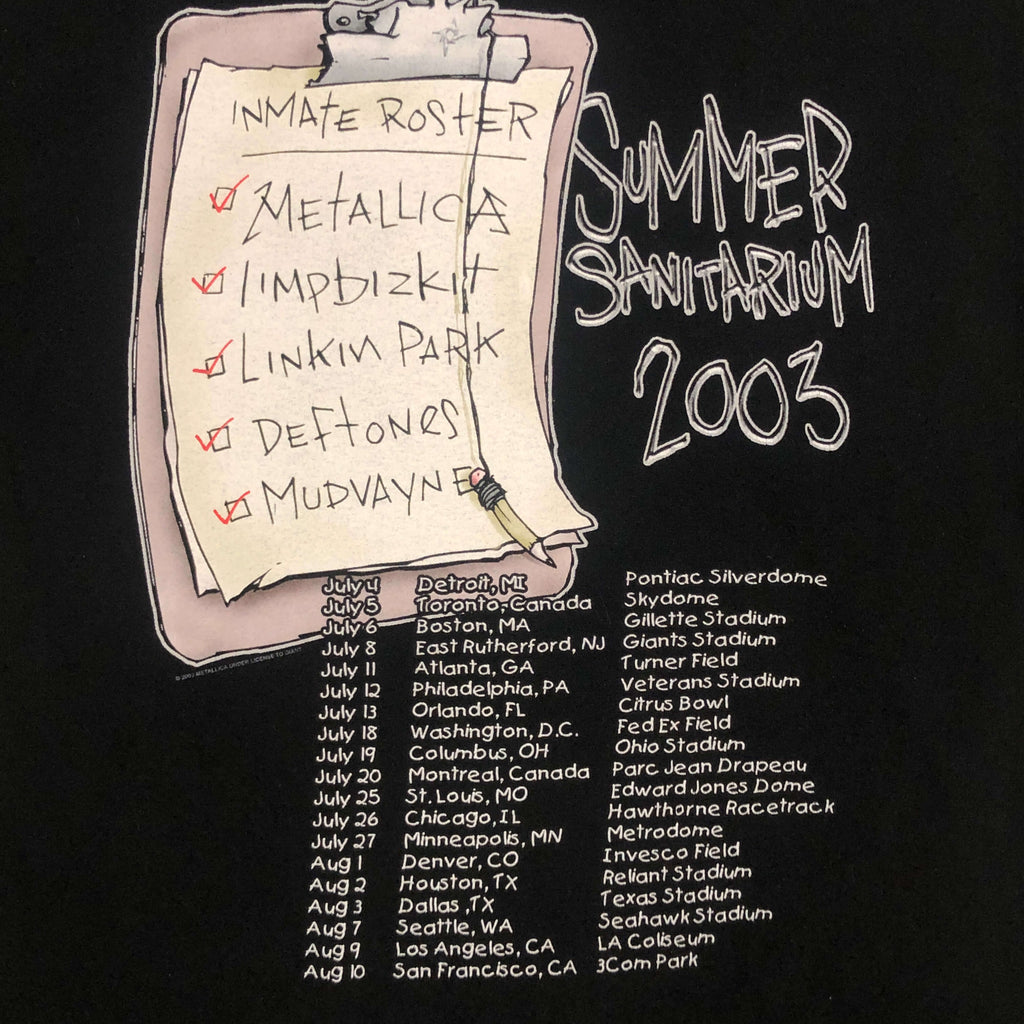 INMATE ROSTER
METALLICA
limpbizkit
LINKIN PARK
DEFTONES
MUDVAYNE
SUMMER
SANITARIUM
2003
© 2003 METALLICA UNDER LICENSE TO GIANT
July 4 Detroit, MI Pontiac Silverdome
July 5 Toronto, Canada Skydome
July 6 Boston, MA Gillette Stadium
July 8 East Rutherford, NJ Giants Stadium
July 11 Atlanta, GA Turner Field
July 12 Philadelphia, PA Veterans Stadium
July 13 Orlando, FL Citrus Bowl
July 18 Washington, D.C. Fed Ex Field
July 19 Columbus, OH Ohio Stadium
July 20 Montreal, Canada Parc Jean Drapeau
July 25 St. Louis, MO Edward Jones Dome
July 26 Chicago, IL Hawthorne Racetrack
July 27 Minneapolis, MN Metrodome
Aug 1 Denver, CO Invesco Field
Aug 2 Houston, TX Reliant Stadium
Aug 3 Dallas ,TX Texas Stadium
Aug 7 Seattle, WA Seahawk Stadium
Aug 9 Los Angeles, CA LA Coliseum
Aug 10 San Francisco, CA 3Com Park